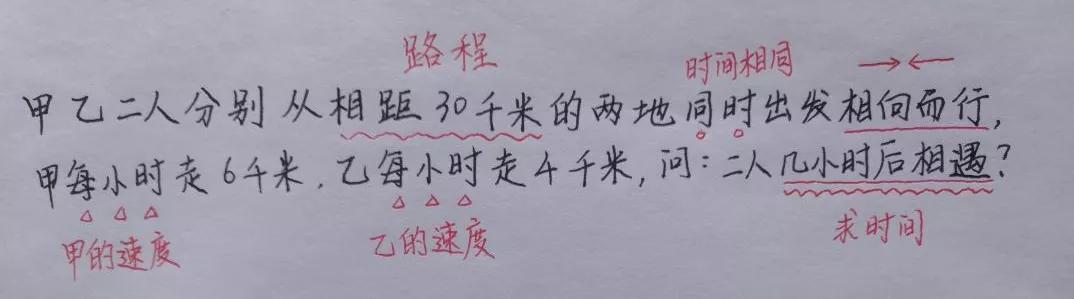 路程
时间相同
甲乙二人分别从相距30千米的两地同时出发相向而行,
甲每小时走6千米,乙每小时走4千米,问:二人几小时后相遇?
甲的速度
乙的速度
求时间